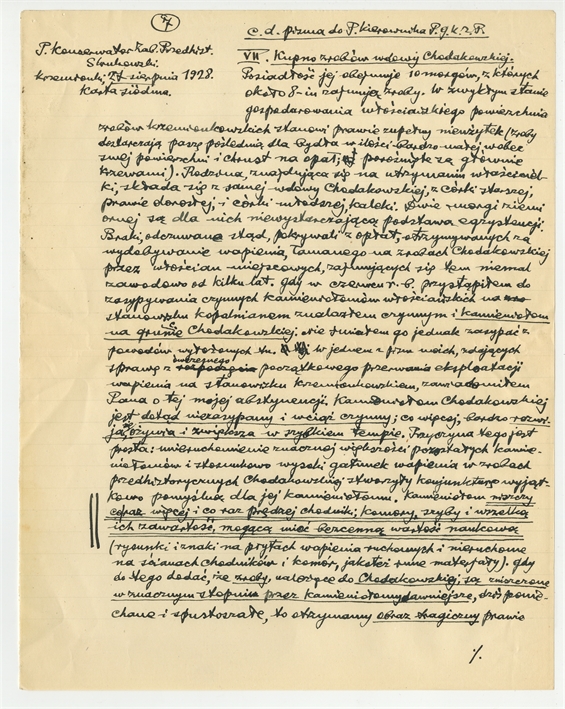 7
c. d. pisma do P. Kierownika P. g. k. z. P.
P. Konserwator Zab. Przedhist.
Krukowski.
Krzemionki, 27 sierpnia 1928.
Karta siódma.
VII. Kupno zrobów wdowy Chodakowskiej.
Posiadłość jej obejmuje 10 morgów, z których
około 8-iu zajmują zroby. W zwykłym stanie
gospodarowania włościańskiego powierzchnia
zrobów krzemionkowskich stanowi prawie zupełny nieużytek (zroby
dostarczają paszę pośledną dla bydła w ilości bardzo małej wobec
swej powierzchni i chrust na opał; porośnięte są głównie
krzewami). Rodzina, znajdująca się na utrzymaniu właściciel-
ki, składa się z samej wdowy Chodakowskiej, z córki starszej,
prawie dorosłej, i córki młodszej, kaleki. Dwie morgi ziemi
ornej są dla nich niewystarczającą podstawą egzystencji.
Braki, odczuwane stąd, pokrywali z opłat, otrzymywanych za
wydobywanie wapienia, łamanego na zrobach Chodakowskiej
przez włościan miejscowych, zajmujących się tem niemal
zawodowo od kilku lat. Gdy w czerwcu r. b. przystąpiłem do
zasypywania czynnych kamieniołomów włościańskich na
stanowisku kopalnianem znalazłem czynnym i kamieniołom
na gruncie Chodakowskiej. Nie śmiałem go jednak zasypać z
powodów wyłożonych tu. i w jednem z pism moich, zdających
sprawę z ówczesnego początkowego przerwania eksploatacji
wapienia na stanowisku krzemionkowskiem, zawiadomiłem
Pana o tej mojej abstynencji. Kamieniołom Chodakowskiej
jest dotąd niezasypany i wciąż czynny; co więcej, bardzo rozwi-
ja się, ożywia i zwiększa w szybkiem tempie. Przyczyna tego jest
prosta: unieruchomienie znacznej większości pozostałych kamie-
niołomów i stosunkowo wysoki gatunek wapienia w zrobach
przedhistorycznych Chodakowskiej stworzyły konjunkturę wyjąt-
kowo pomyślną dla jej kamieniołomu. Kamieniołom niszczy
coraz więcej i coraz prędzej chodniki, komory, szyby i wszelką
ich zawartość, mogącą mieć bezcenną wartość naukową
(rysunki i znaki na płytach wapienia ruchomych i nieruchome
na ścianach chodników i komór, jakoteż inne materjały). Gdy
do tego dodać, że zroby, należące do Chodakowskiej, są zniszczone
w znacznym stopniu przez kamieniołomy dawniejsze, dziś ponie-
chane i spustoszałe, to otrzymamy obraz tragiczny prawie
./.